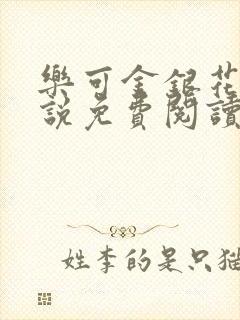 樂可金銀花
說免費閱讀
姓李的是只猫